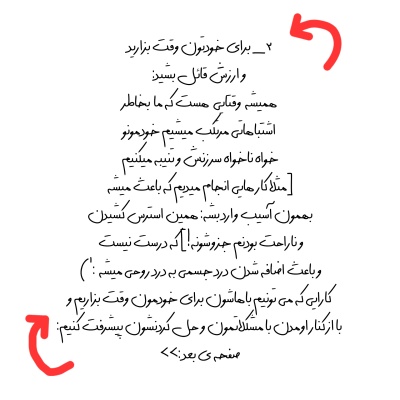 ۲_ برای خودتون وقت بزارید
و ارزش قائل بشید:
همیشه وقتایی هست که ما بخاطر
اشتباهاتی مرتکب میشیم خودمونو
خواه ناخواه سرزنش و تنبیه میکنیم
[مثلا کارهایی انجام میدیم که باعث میشه
بهمون آسیب وارد بشه: همین استرس کشیدن
و ناراحت بودنم جزوشونه!] که درست نیست
و باعث اضافه شدن درد جسمی به درد روحی میشه :')
کارایی که می تونیم باهاشون برای خودمون وقت بزاریم و
با ازکنار اومدن با مشکلاتمون و حل کردنشون پیشرفت کنیم:
صفحه ی بعد:>>